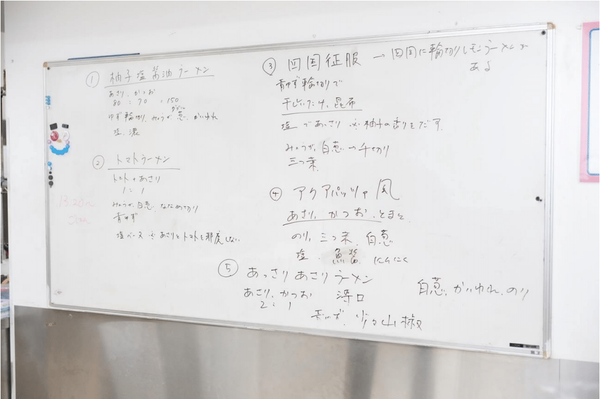 ① 柚子塩醤油ラーメン
あさり、かつお
80 : 70 = 150
ゆず輪切り、みょうが、白葱、かいわれ
塩、濃
② トマトラーメン
トマト、あさり
1 : 1
みょうが、白葱 ななめぎり
青ゆず
塩ベース + あさりとトマトを邪魔しない
③ 四国征服 → 四国に輪切りレモンラーメンが
ある
青ゆず輪切りで
干ししいたけ、昆布
塩 であさり 柚子の香りをだす
みょうが、白葱 → 千切り
三つ葉
④ アクアパッツァ風
あさり、かつお、とまと
のり、三つ葉、白葱
塩、魚醤 にんにく
⑤ あっさりあさりラーメン
あさり、かつお 薄口
2 : 1
白葱、かいわれ、のり
青ゆず、少々山椒